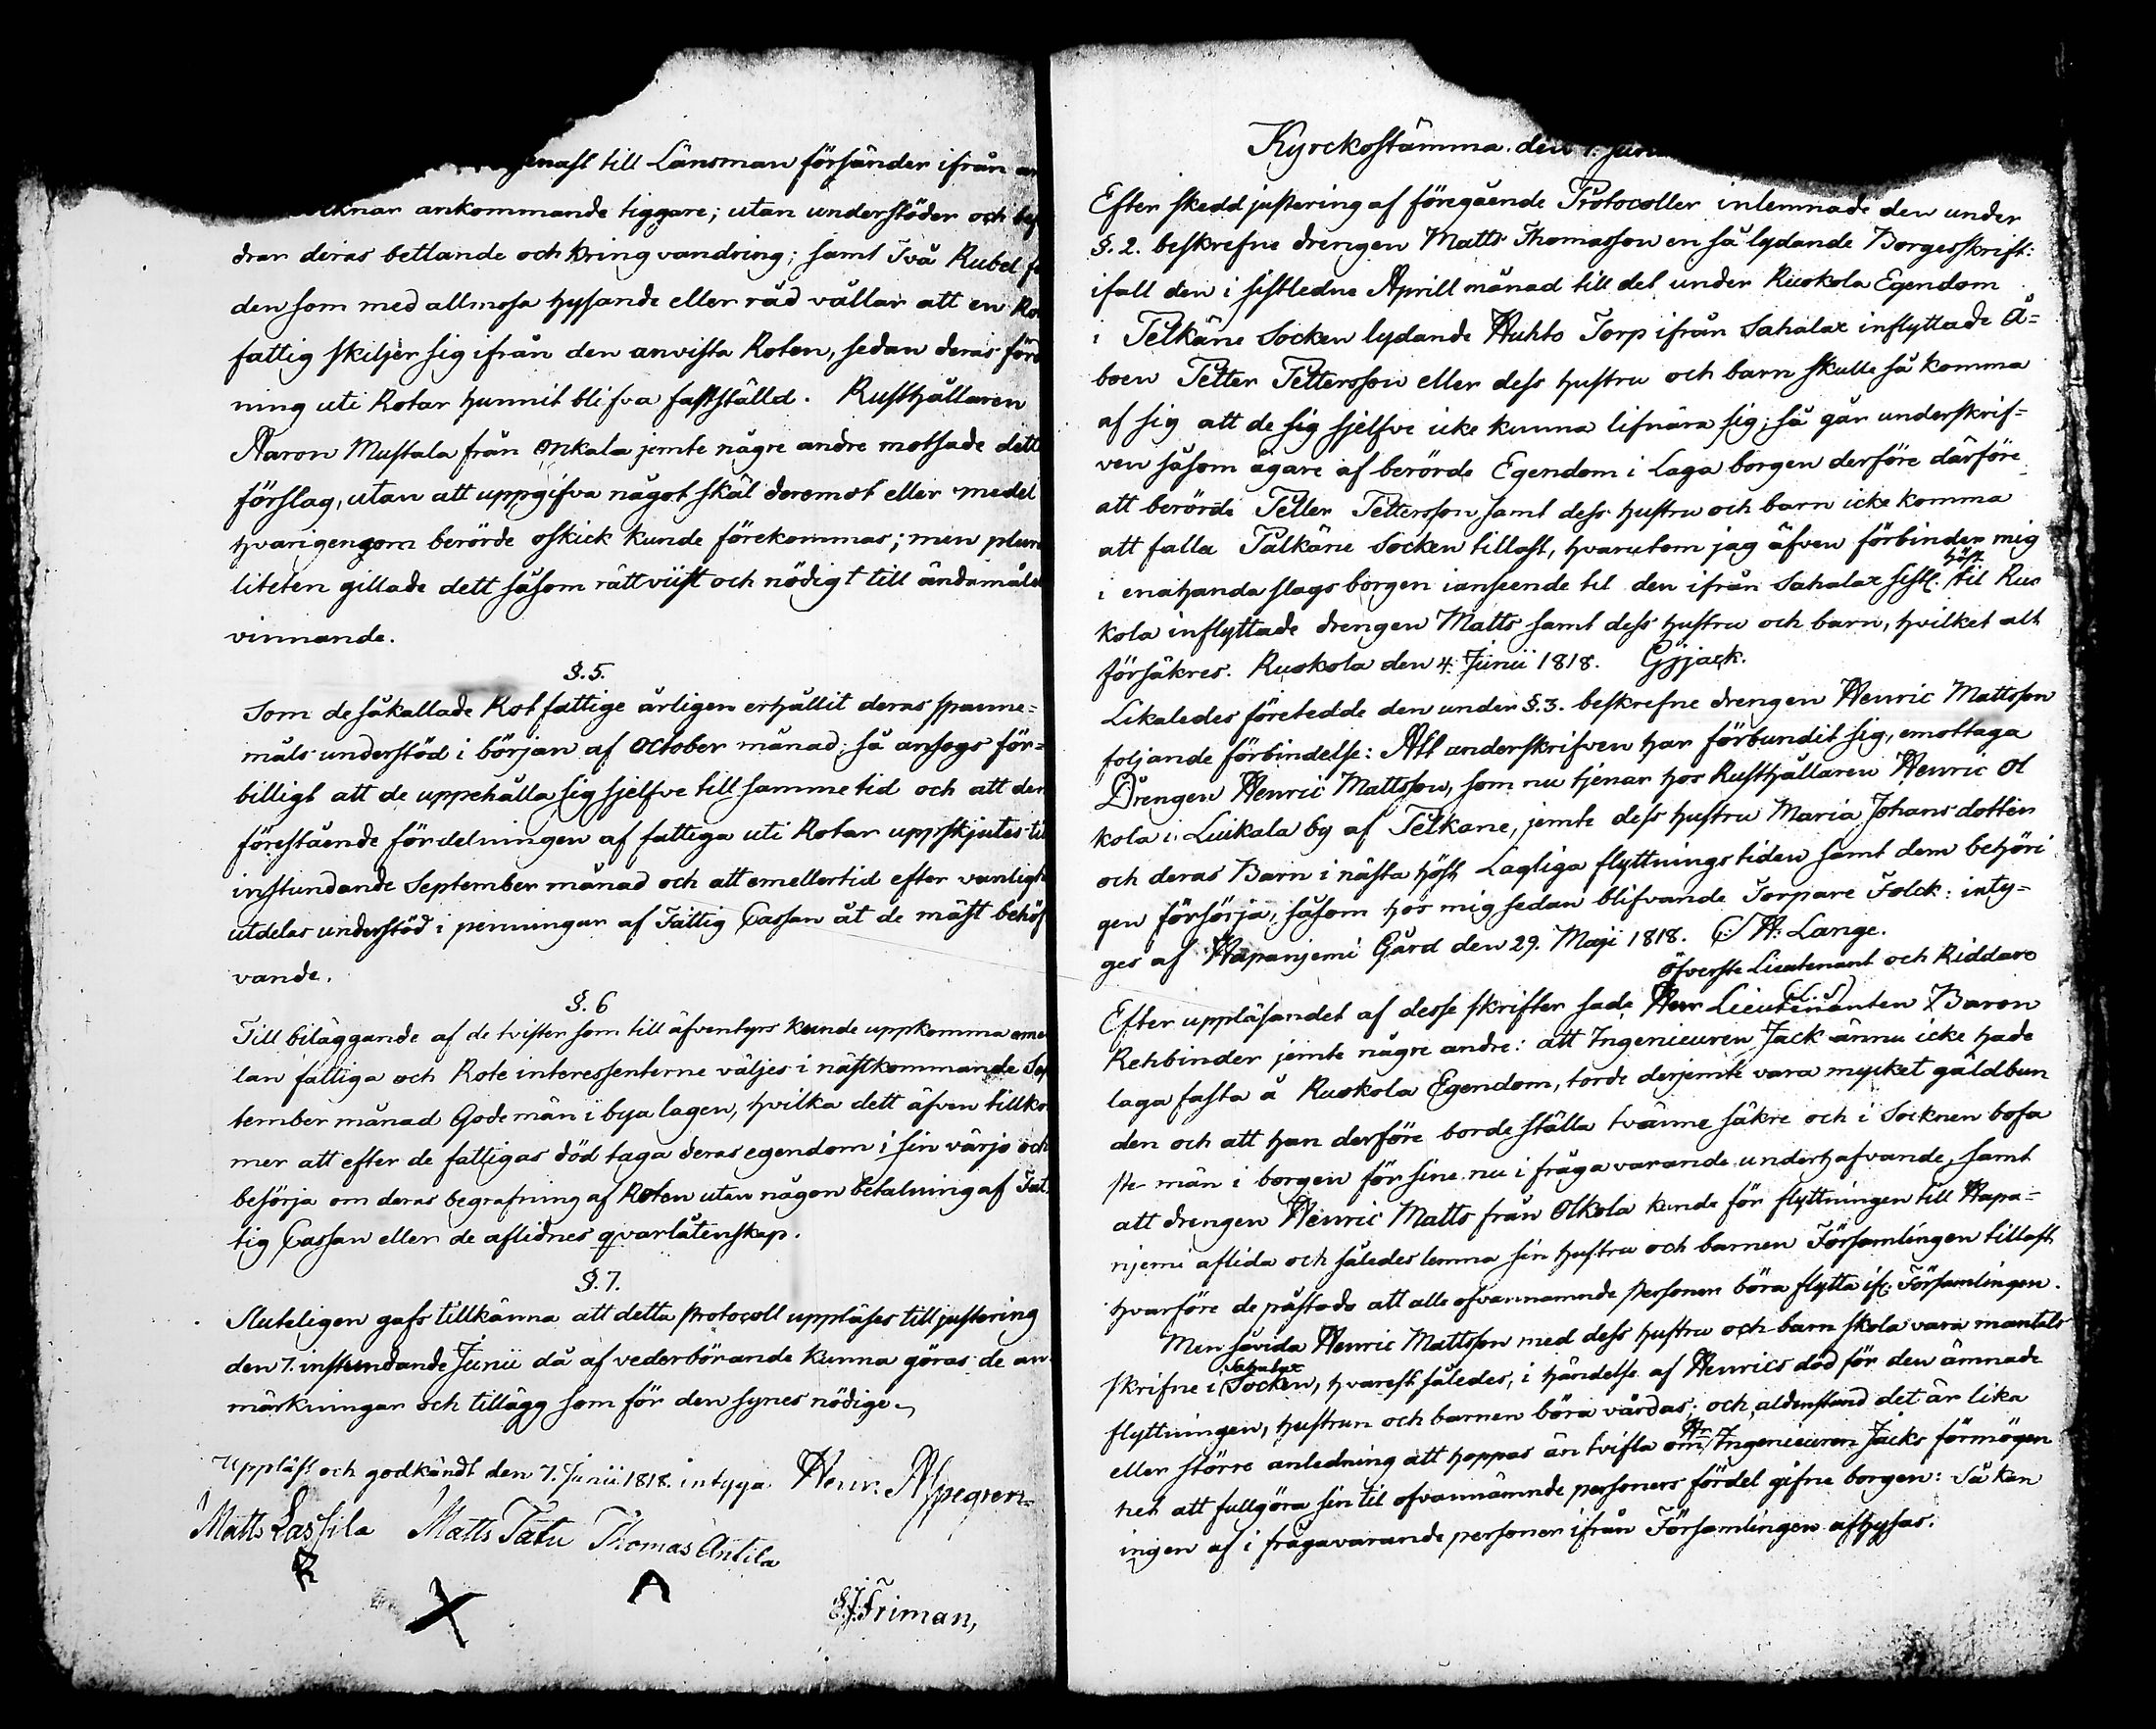 till Länsman försänder ifrån
ankommande tiggare; utan understöder och
drar deras bettlande och kringvandring; samt Två Rubel
den som med allmosa hysande eller råd vållar att en
fattig skiljer sig ifrån den anvista Roten, sedan deras
ning uti Rotar hunnit blifva fastställd. Rusthållaren
Aaron Mustala från Onkala jemte någre andre motsade
förslag, utan att uppgifva något skäl deremot eller medel
hvarigenom berörde oskick kunde förekommas; men
liteten gillade dett såsom rättvist och nödigt till
vinnande.
§.5.
Som de såkallade Rotfattige årligen erhållit deras spanne=
måls understöd i början af October månad; så ansogs för=
billigt att de uppehålla sig sjelfve till samme tid och att
förestående fördelningen af fattiga uti Rotar uppskjutes
instundande September månad och att emellertid efter
utdelas understöd i penningar af Fattig Cassan åt de mäst
vande.
§.6
Till biläggande af de tvister som till äfventyrs kunde uppkomma
lan fattiga och Rote interessenterne väljes i nästkommande
tember månad Gode män i byalagen, hvilka dett äfven
mer att efter de fattigas död taga deras egendom i sin värjo och
besörja om deras begrafning af Roten utan någon betalning af
tig Cassan eller de aflidnes qvarlåtenskap.
§.7.
Sluteligen gafs tillkänna att detta Protocoll uppläses till justering
den 7. instundande Junii då af vederbörande kunna göras de an
märkningar och tillägg som för den synes nödige.
Uppläst och godkändt den 7. Junii 1818. intyga Henr. Aspegren
Matts Lassila Matts Tatu Thomas Antila
Friman,
Kyrckostämma den 7.
Efter skedd justering af föregående Protocoller inlemnade den under
§.2. beskrefne drengen Matts Thomasson en så lydande Borgesskrift:
ifall den i sistledne Aprill månad till det under Ruokola Egendom
i Pelkäne Socken lydande Huhto Torp ifrån Sahalax inflyttade Å=
boen Petter Pettersson eller dess hustru och barn skulle så komma
af sig att de sig sjelfve icke kunna lifnära sig; så går underskrif=
ven såsom ägare af berörde Egendom i Laga borgen derföre därföre
att berörde Petter Pettersson samt dess hustru och barn icke komma
att falla Pälkäne Socken till last, hvarutom jag äfven förbinder mig
i enahanda slags borgen i anseende til den ifrån Sahalax sistl. höst til Ruo
kola inflyttade drengen Matts samt dess hustru och barn, hvilket alt
försäkres. Ruokola den 4. Junii 1818. Gjjack.
Likaledes företedde den under §.3. beskrefne drengen Henric Mattsson
foljande förbindelse: Att underskrifven har förbundit sig, emottaga
Drengen Henric Mattsson, som nu tjenar hos Rusthållaren Henric Ol
kola i Luikala by af Pelkane, jemte dess hustru Maria Johansdotter
och deras Barn i nästa höst Lagliga flyttningstiden samt dem behöri
gen försörja, såsom hos mig sedan blifvande Torpare Folck: inty=
ges af Hapanjemi Gård den 29. Maji 1818. Lange.
öfverste Lieutenant och Riddare
(L.S)
Efter uppläsandet af desse skrifter sade Herr Lieutenanten Baron
Rehbinder jemte någre andre: att Ingenieuren Jack ännu icke hade
laga fasta å Ruokola Egendom, torde derjemte vara mycket gäldbun
den och att han derföre borde ställa tvänne säkre och i Socknen bofa
ste män i borgen för sine nu i fråga varande underhafvande, samt
att drengen Henric Matts från Olkola kunde för flyttningen till Hapa=
njemi aflida och således lemna sin hustru och barnen Församlingen till last
hvarföre de påstodo att alle ofvannämnde personer böra flytta ifr. Församlingen.
Men såvida Henric Mattsson med dess hustru och barn skola vara mantals
skrifne i Sahalax Socken, hvarest således, i händelse af Henrics död för den ämnade
flyttningen, hustrun och barnen böra vårdas; och aldenstund det är lika
eller större anledning att hoppas än tvifla om Hr Ingenieuren Jacks förmögen
het att fullgöra sin til ofvannämnde personers fördel gifne borgen: Så kan
ingen af i frågavarande personer ifrån Församlingen afhysas.